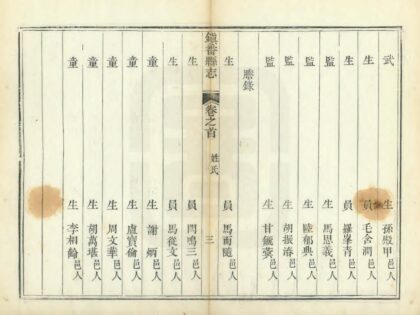 武生孫殿甲邑人
生員毛含潤邑人
生員羅峯青邑人
監生馬恩義邑人
監生陸郁典邑人
監生胡振濤邑人
監生甘邑人
謄錄
生員馬雨隨邑人
鎭番縣志 卷之首 姓氏 三
生員閃鳴三邑人
生員馬從文邑人
童生謝炳邑人
童生盧寶倫邑人
童生周文華邑人
童生胡萬堪邑人
童生李相綸邑人